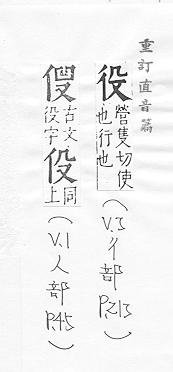 重訂直音篇
役 營隻切使
也行也
(V.3 彳部 P.213)
古文
役字
同
上
(V.1 人部 P.45)